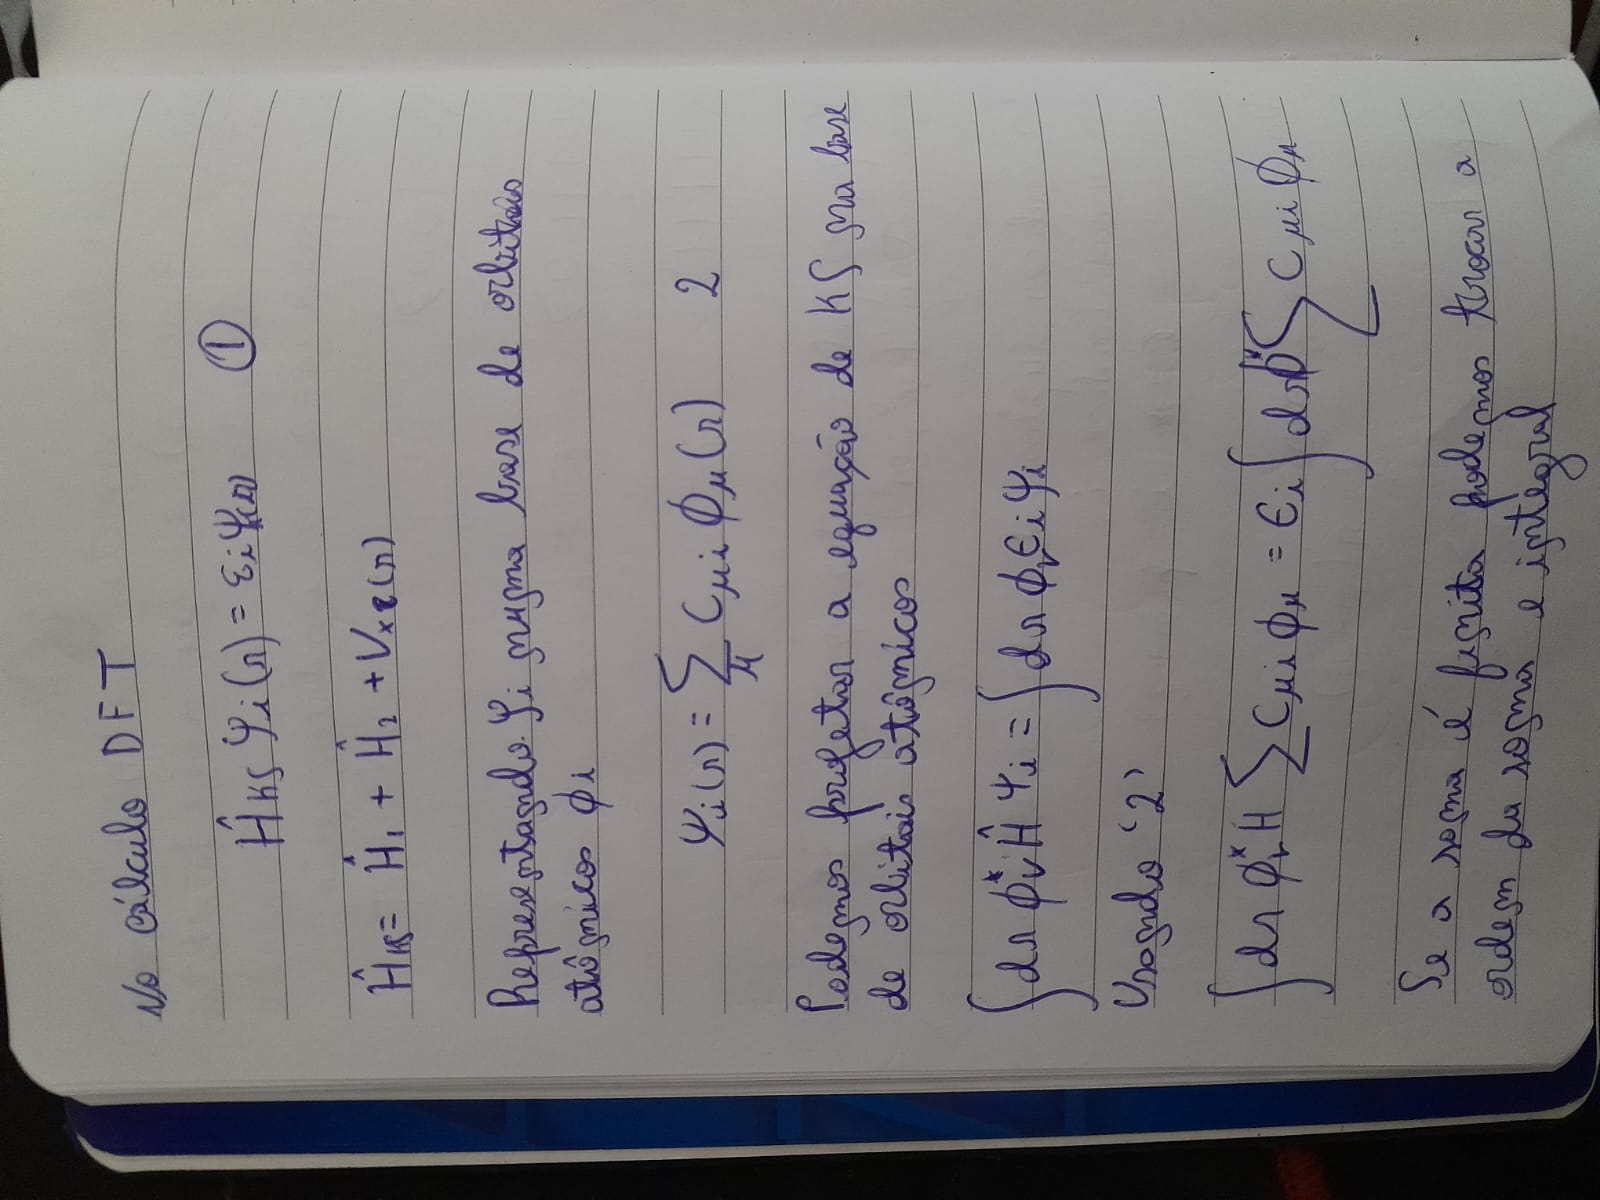 No cálculo DFT
Ĥ_KS ψ_i(r) = ε_i ψ_i(r) ①
Ĥ_KS = Ĥ_1 + Ĥ_2 + V_xc(r)
Representando ψ_i numa base de orbitais
atômicos ϕ_i
ψ_i(r) = ∑_μ C_μi ϕ_μ(r) 2
Podemos projetar a equação de KS na base
de orbitais atômicos
∫dr ϕ_ν^* Ĥ ψ_i = ∫dr ϕ_ν ε_i ψ_i
Usando ‘2’
∫dr ϕ_ν^* H ∑ C_μi ϕ_μ = ε_i ∫dr ϕ^* ∑ C_μi ϕ_μ
Se a soma é finita podemos trocar a
ordem da soma e integral